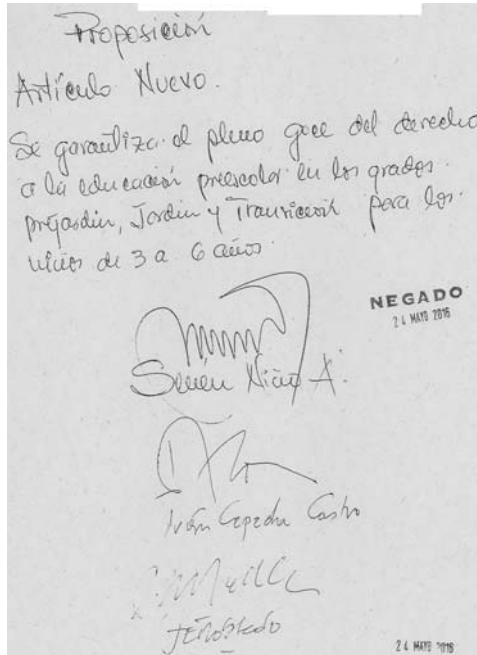 Proposición
Artículo Nuevo.
Se garantiza el pleno goce del derecho
a la educación preescolar en los grados
prejardín, Jardín y Transición para los
niños de 3 a 6 años.
NEGADO
24 MAYO 2016
Senén Niño A.
Iván Cepeda Castro
JERobledo
24 MAYO 2016